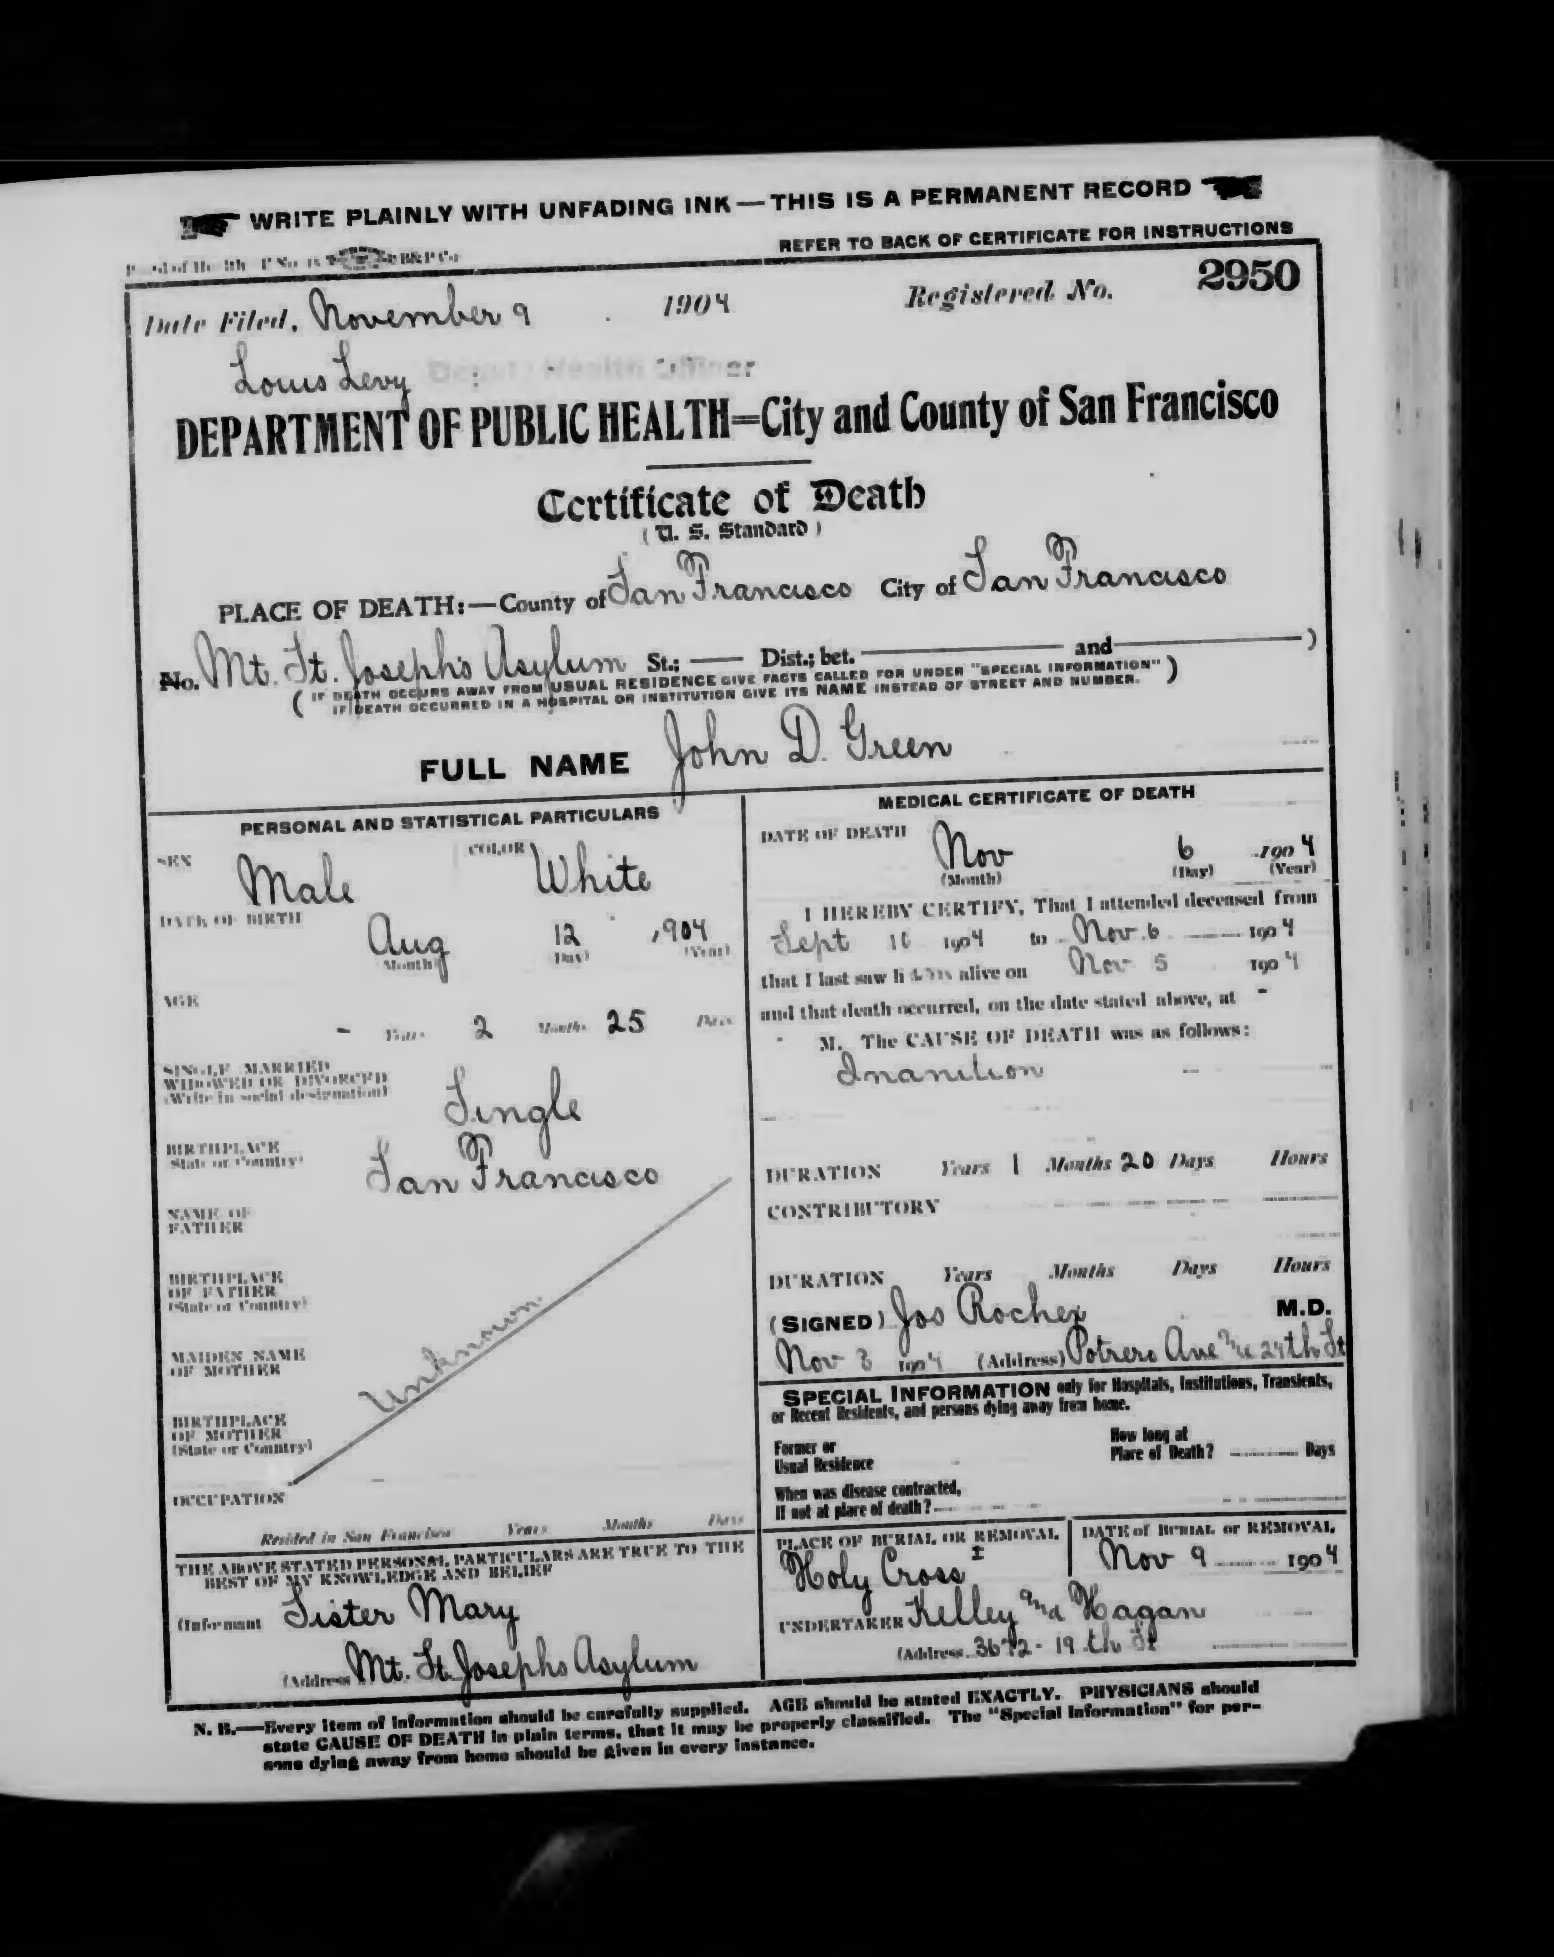 WRITE PLAINLY WITH UNFADING INK — THIS IS A PERMANENT RECORD
REFER TO BACK OF CERTIFICATE FOR INSTRUCTIONS
Date Filed, November 9 1904 Registered No. 2950
Louis Levy Deputy Health Officer
DEPARTMENT OF PUBLIC HEALTH=City and County of San Francisco
Certificate of Death
(U. S. Standard)
PLACE OF DEATH:—County of San Francisco City of San Francisco
No. Mt. St. Joseph's Asylum St.; — Dist.; bet. — and — )
( IF DEATH OCCURS AWAY FROM USUAL RESIDENCE GIVE FACTS CALLED FOR UNDER "SPECIAL INFORMATION" )
IF DEATH OCCURRED IN A HOSPITAL OR INSTITUTION GIVE ITS NAME INSTEAD OF STREET AND NUMBER.
FULL NAME John D. Green
PERSONAL AND STATISTICAL PARTICULARS
SEX Male COLOR White
DATE OF BIRTH
Aug 12 1904
(Month) (Day) (Year)
AGE
- Years 2 Months 25 Days
SINGLE, MARRIED
WIDOWED OR DIVORCED
(Write in social designation)
Single
BIRTHPLACE
(State or Country)
San Francisco
NAME OF
FATHER
BIRTHPLACE
OF FATHER
(State or Country)
Unknown
MAIDEN NAME
OF MOTHER
BIRTHPLACE
OF MOTHER
(State or Country)
OCCUPATION
Resided in San Francisco Years Months Days
THE ABOVE STATED PERSONAL PARTICULARS ARE TRUE TO THE
BEST OF MY KNOWLEDGE AND BELIEF
(Informant Sister Mary
(Address Mt. St. Josephs Asylum
MEDICAL CERTIFICATE OF DEATH
DATE OF DEATH
Nov 6 1904
(Month) (Day) (Year)
I HEREBY CERTIFY, That I attended deceased from
Sept 1904 to Nov. 6 1904
that I last saw him alive on Nov 5 1904
and that death occurred, on the date stated above, at -
- M. The CAUSE OF DEATH was as follows:
Inanition
DURATION Years 1 Months 20 Days Hours
CONTRIBUTORY
DURATION Years Months Days Hours
(SIGNED) Jos Rocher M.D.
Nov 1904 (Address) Potrero Ave 24th St
SPECIAL INFORMATION only for Hospitals, Institutions, Transients,
or Recent Residents, and persons dying away from home.
Former or
Usual Residence
How long at
Place of Death? Days
When was disease contracted,
If not at place of death?
PLACE OF BURIAL OR REMOVAL
Holy Cross
DATE of BURIAL or REMOVAL
Nov 9 1904
UNDERTAKER Kelley and Hagan
(Address 3672 - 19th St
N. B.—Every item of information should be carefully supplied. AGE should be stated EXACTLY. PHYSICIANS should
state CAUSE OF DEATH in plain terms, that it may be properly classified. The "Special Information" for per-
sons dying away from home should be given in every instance.